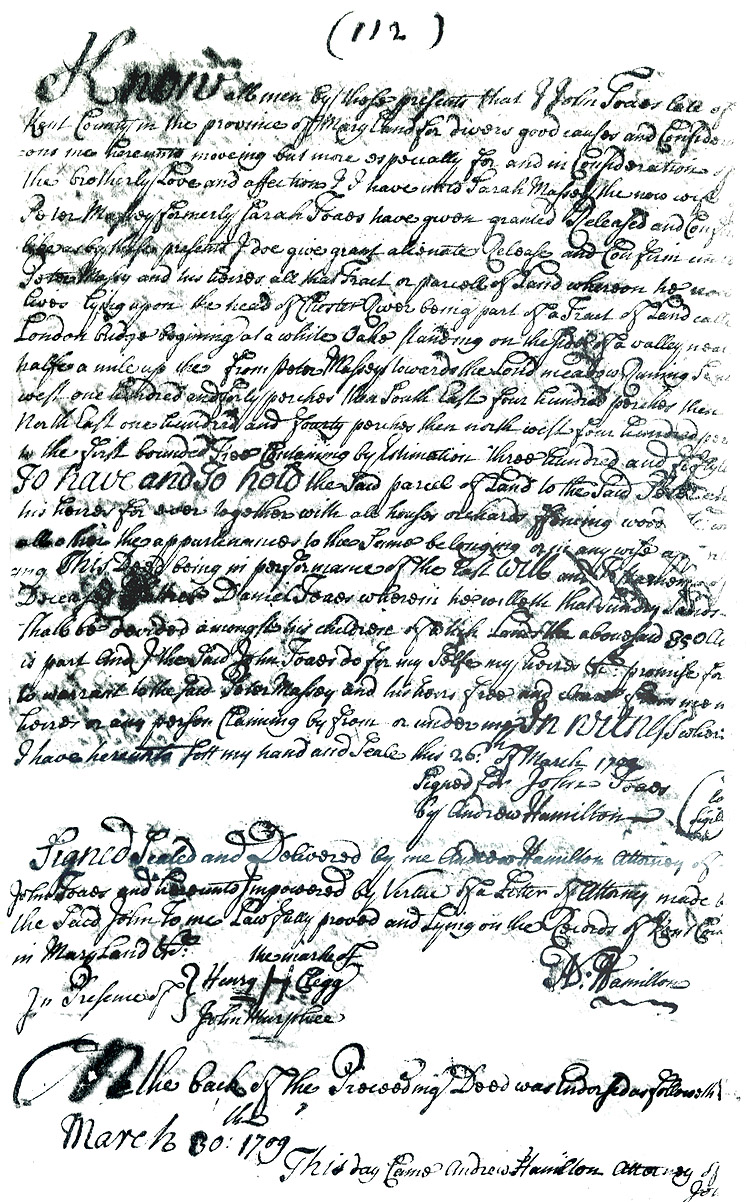 (112)
Know all men by these presents that I John Toaes late of
Kent County in the province of Mary Land for divers good causes and Consider
ons me hereunto moveing but more especially for and in Consideration of
the brotherly Love and affection I have unto Sarah Massey the now wife
Peter Massey formerly Sarah Toaes have given granted Released and Conf
by these presents I doe give grant alienate Release and Confirm un
Peter Massey and his heires all that Tract or parcell of Land whereon he now
lives lying upon the head of Chester River being part of a Tract of Land call
London bridge begining at a white Oake standing on the side of a valley near
halfe a mile up the from Peter Masseys towards the Lond meadow Runing
west one hundred and forty perches then South East four hundred perches then
North East one hundred and fourty perches then north west four hundred per
to the first bounded Tree Containing by Estimation three hundred and fifty
To have and To hold the Said parcel of Land to the Said Peter
his heires for ever together with all houses orchards ffencing wood
all other the appurtenances to the Same belonging or in any wise ap
ing This Deed being in performance of the Last Will and Testamen
Deceased Daniel Toaes wherein he willeth that sundry Lands
Shall be devided amongst his children of which Land the abovesaid 350 A
is part And I the said John Toaes do for my Selfe my heires &c promise for
to warrant to the said Peter Massey and his heirs Free and clear from me
heires or any person Claiming by from or under me In witness wher
I have hereunto Sett my hand and Seale this 26th of March 1709
Signed for John Toaes
by Andrew Hamilton
Signed Sealed and Delivered by me Andrew Hamilton Attorney of
John Toaes and hereunto Impowered by Virtue of a Leter of Attorney made b
the Said John To me Lawfully proved and Lying on the Records of Kent Cou
in Mary Land &c
the marke of
In Presence of } Henry H Clegg
John Murphee
A. Hamilton
On the back of the Preceeding Deed was Endorsed as followeth
March 30th: 1709
This day Came Andrew Hamilton Attorney of
Joh